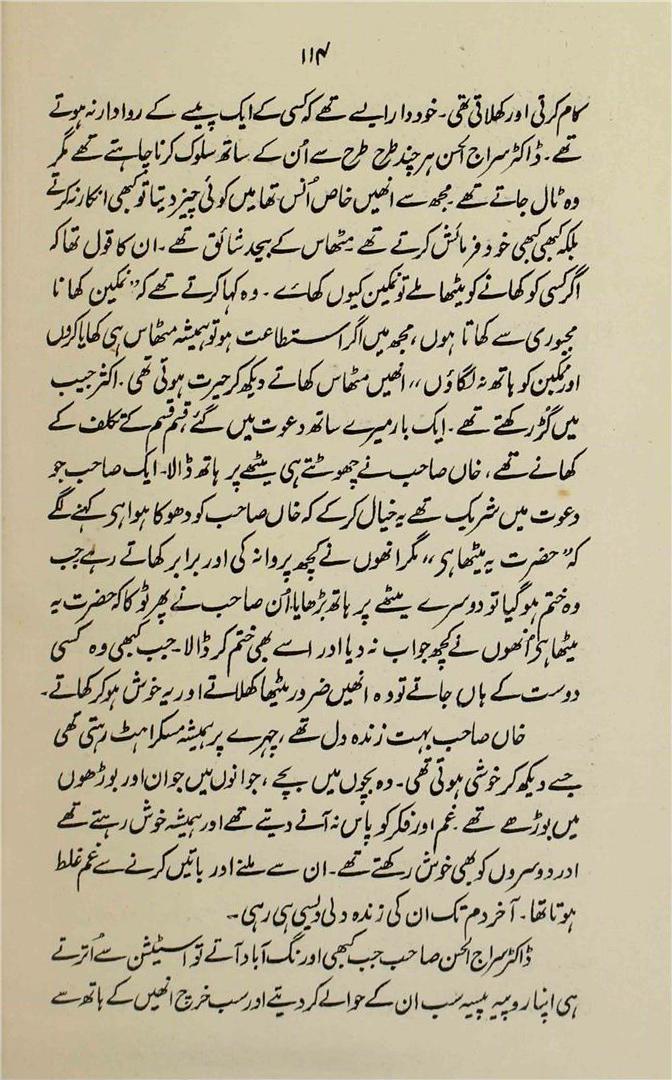 ۱۱۴
کام کرتی اور کھلاتی تھی۔ خود دار ایسے تھے کہ کسی کے ایک پیسے کے روادار نہ ہوتے
تھے۔ ڈاکٹر سراج الحسن ہر چند طرح طرح سے اُن کے ساتھ سلوک کرنا چاہتے تھے مگر
وہ ٹال جاتے تھے۔ مجھ سے انھیں خاص اُنس تھا میں کوئی چیز دیتا تو کبھی انکار نہ کرتے
بلکہ کبھی کبھی خود فرمائش کرتے تھے مٹھاس کے بیحد شائق تھے۔ ان کا قول تھا کہ
اگر کسی کو کھانے کو میٹھا ملے تو نمکین کیوں کھائے۔ وہ کہا کرتے تھے کہ ”نمکین کھانا
مجبوری سے کھاتا ہوں، مجھ میں اگر استطاعت ہو تو ہمیشہ مٹھاس ہی کھایا کروں
اور نمکین کو ہاتھ نہ لگاؤں“ انھیں مٹھاس کھاتے دیکھ کر حیرت ہوتی تھی۔ اکثر جیب
میں گڑ رکھتے تھے۔ ایک بار میرے ساتھ دعوت میں گئے، قسم قسم کے تکلف کے
کھانے تھے، خاں صاحب نے چھوٹتے ہی میٹھے پر ہاتھ ڈالا۔ ایک صاحب جو
دعوت میں شریک تھے یہ خیال کر کے کہ خاں صاحب کو دھوکا ہوا ہی کہنے لگے
کہ ”حضرت یہ میٹھا ہی“ مگر انھوں نے کچھ پروا نہ کی اور برابر کھاتے رہے جب
وہ ختم ہو گیا تو دوسرے میٹھے پر ہاتھ بڑھایا۔ اُن صاحب نے پھر ٹوکا کہ حضرت یہ
میٹھا ہی اُنھوں نے کچھ جواب نہ دیا اور اسے بھی ختم کر ڈالا۔ جب کبھی وہ کسی
دوست کے ہاں جاتے تو وہ انھیں ضرور میٹھا کھلاتے اور یہ خوش ہو کر کھاتے۔
خاں صاحب بہت زندہ دل تھے، چہرے پر ہمیشہ مسکراہٹ رہتی تھی
جسے دیکھ کر خوشی ہوتی تھی۔ وہ بچوں میں بچے، جوانوں میں جوان اور بوڑھوں
میں بوڑھے تھے۔ غم اور فکر کو پاس نہ آنے دیتے تھے اور ہمیشہ خوش رہتے تھے
اور دوسروں کو بھی خوش رکھتے تھے۔ ان سے ملنے اور باتیں کرنے سے غم غلط
ہوتا تھا۔ آخر دم تک ان کی زندہ دلی ویسی ہی رہی۔
ڈاکٹر سراج الحسن صاحب جب کبھی اورنگ آباد آتے تو اسٹیشن سے اُترتے
ہی اپنا روپیہ پیسہ سب ان کے حوالے کر دیتے اور سب خرچ انھیں کے ہاتھ سے